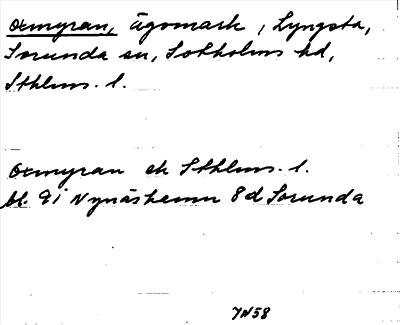 Oxmyran, ägomark, Lyngsta,
Sorunda sn, Sotholms hd,
Sthlms. l.
Oxmyran ek Sthlms. l.
bl. 9i Nynäshamn 8d Sorunda
JN58